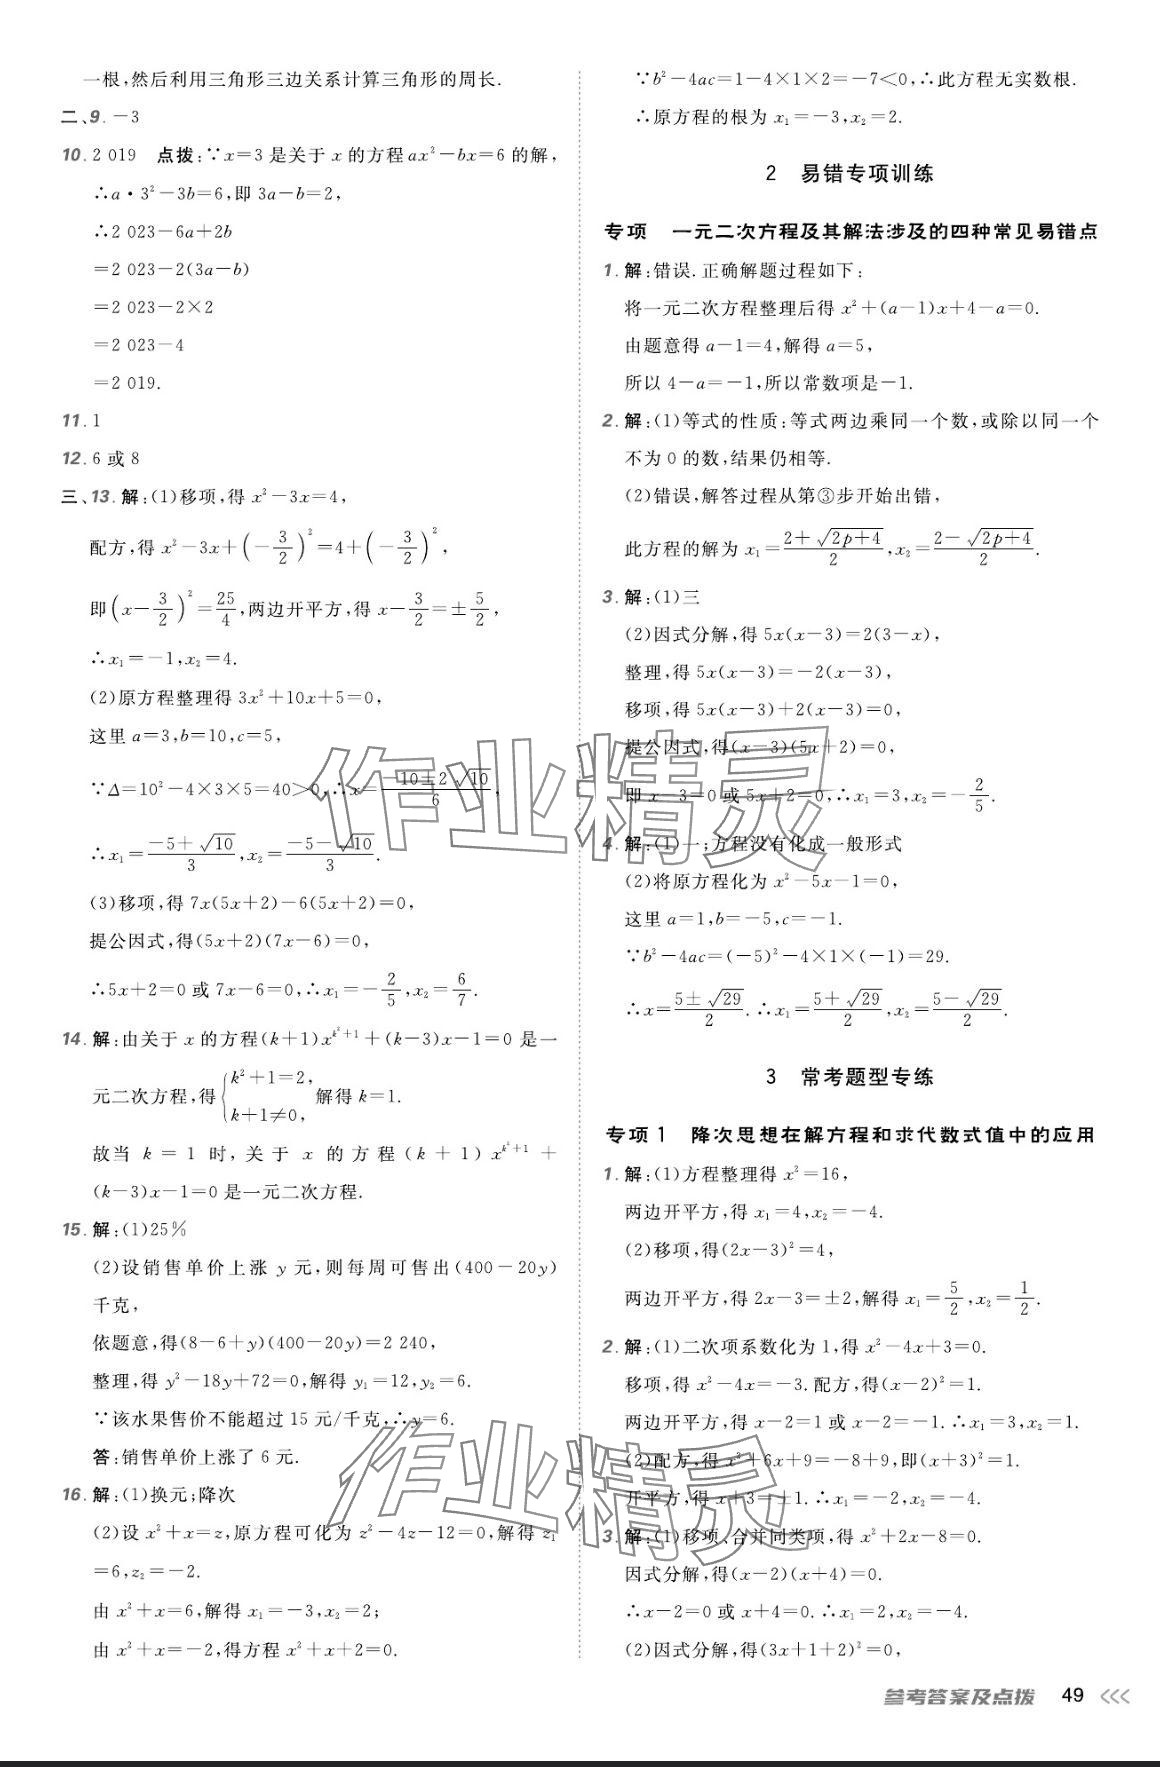 一根,然后利用三角形三边关系计算三角形的周长.
二、9. －3
10. 2 019　点拨:∵x＝3 是关于 x 的方程 ax²－bx＝6 的解,
∴a·3²－3b＝6,即 3a－b＝2,
∴2 023－6a＋2b
＝2 023－2(3a－b)
＝2 023－2×2
＝2 023－4
＝2 019.
11. 1
12. 6 或 8
三、13. 解:(1)移项,得 x²－3x＝4,
配方,得 x²－3x＋(－3/2)²＝4＋(－3/2)²,
即(x－3/2)²＝25/4,两边开平方,得 x－3/2＝±5/2,
∴x₁＝－1,x₂＝4.
(2)原方程整理得 3x²＋10x＋5＝0,
这里 a＝3,b＝10,c＝5,
∵Δ＝10²－4×3×5＝40>0,∴x＝(－10±2√10)/6,
∴x₁＝(－5＋√10)/3,x₂＝(－5－√10)/3.
(3)移项,得 7x(5x＋2)－6(5x＋2)＝0,
提公因式,得(5x＋2)(7x－6)＝0,
∴5x＋2＝0 或 7x－6＝0,∴x₁＝－2/5,x₂＝6/7.
14. 解:由关于 x 的方程(k＋1)x^(k²＋1)＋(k－3)x－1＝0 是一
元二次方程,得{k²＋1＝2, k＋1≠0, 解得 k＝1.
故当 k＝1 时,关于 x 的方程(k＋1)x^(k²＋1)＋
(k－3)x－1＝0 是一元二次方程.
15. 解:(1)25%
(2)设销售单价上涨 y 元,则每周可售出(400－20y)
千克,
依题意,得(8－6＋y)(400－20y)＝2 240,
整理,得 y²－18y＋72＝0,解得 y₁＝12,y₂＝6.
∵该水果售价不能超过 15 元/千克,∴y＝6.
答:销售单价上涨了 6 元.
16. 解:(1)换元;降次
(2)设 x²＋x＝z,原方程可化为 z²－4z－12＝0,解得 z₁
＝6,z₂＝－2.
由 x²＋x＝6,解得 x₁＝－3,x₂＝2;
由 x²＋x＝－2,得方程 x²＋x＋2＝0.
∵b²－4ac＝1－4×1×2＝－7<0,∴此方程无实数根.
∴原方程的根为 x₁＝－3,x₂＝2.
2　易错专项训练
专项　一元二次方程及其解法涉及的四种常见易错点
1. 解:错误.正确解题过程如下:
将一元二次方程整理后得 x²＋(a－1)x＋4－a＝0.
由题意得 a－1＝4,解得 a＝5,
所以 4－a＝－1,所以常数项是－1.
2. 解:(1)等式的性质:等式两边乘同一个数,或除以同一个
不为 0 的数,结果仍相等.
(2)错误,解答过程从第③步开始出错,
此方程的解为 x₁＝(2＋√(2p＋4))/2,x₂＝(2－√(2p＋4))/2.
3. 解:(1)三
(2)因式分解,得 5x(x－3)＝2(3－x),
整理,得 5x(x－3)＝－2(x－3),
移项,得 5x(x－3)＋2(x－3)＝0,
提公因式,得(x－3)(5x＋2)＝0,
即 x－3＝0 或 5x＋2＝0,∴x₁＝3,x₂＝－2/5.
4. 解:(1)一;方程没有化成一般形式
(2)将原方程化为 x²－5x－1＝0,
这里 a＝1,b＝－5,c＝－1.
∵b²－4ac＝(－5)²－4×1×(－1)＝29.
∴x＝(5±√29)/2.∴x₁＝(5＋√29)/2,x₂＝(5－√29)/2.
3　常考题型专练
专项 1　降次思想在解方程和求代数式值中的应用
1. 解:(1)方程整理得 x²＝16,
两边开平方,得 x₁＝4,x₂＝－4.
(2)移项,得(2x－3)²＝4,
两边开平方,得 2x－3＝±2,解得 x₁＝5/2,x₂＝1/2.
2. 解:(1)二次项系数化为 1,得 x²－4x＋3＝0.
移项,得 x²－4x＝－3.配方,得(x－2)²＝1.
两边开平方,得 x－2＝1 或 x－2＝－1.∴x₁＝3,x₂＝1.
(2)配方,得 x²＋6x＋9＝－8＋9,即(x＋3)²＝1.
开平方,得 x＋3＝±1.∴x₁＝－2,x₂＝－4.
3. 解:(1)移项、合并同类项,得 x²＋2x－8＝0.
因式分解,得(x－2)(x＋4)＝0.
∴x－2＝0 或 x＋4＝0.∴x₁＝2,x₂＝－4.
(2)因式分解,得(3x＋1＋2)²＝0,
作业精灵
作业精灵
参考答案及点拨　49